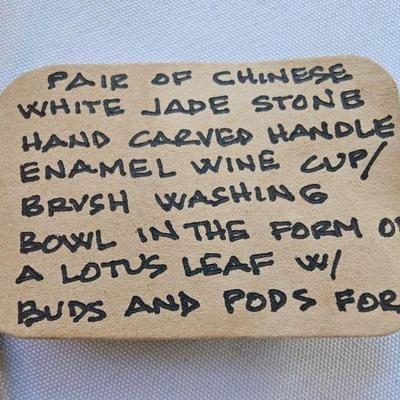 PAIR OF CHINESE
WHITE JADE STONE
HAND CARVED HANDLE
ENAMEL WINE CUP/
BRUSH WASHING
BOWL IN THE FORM OF
A LOTUS LEAF W/
BUDS AND PODS FOR